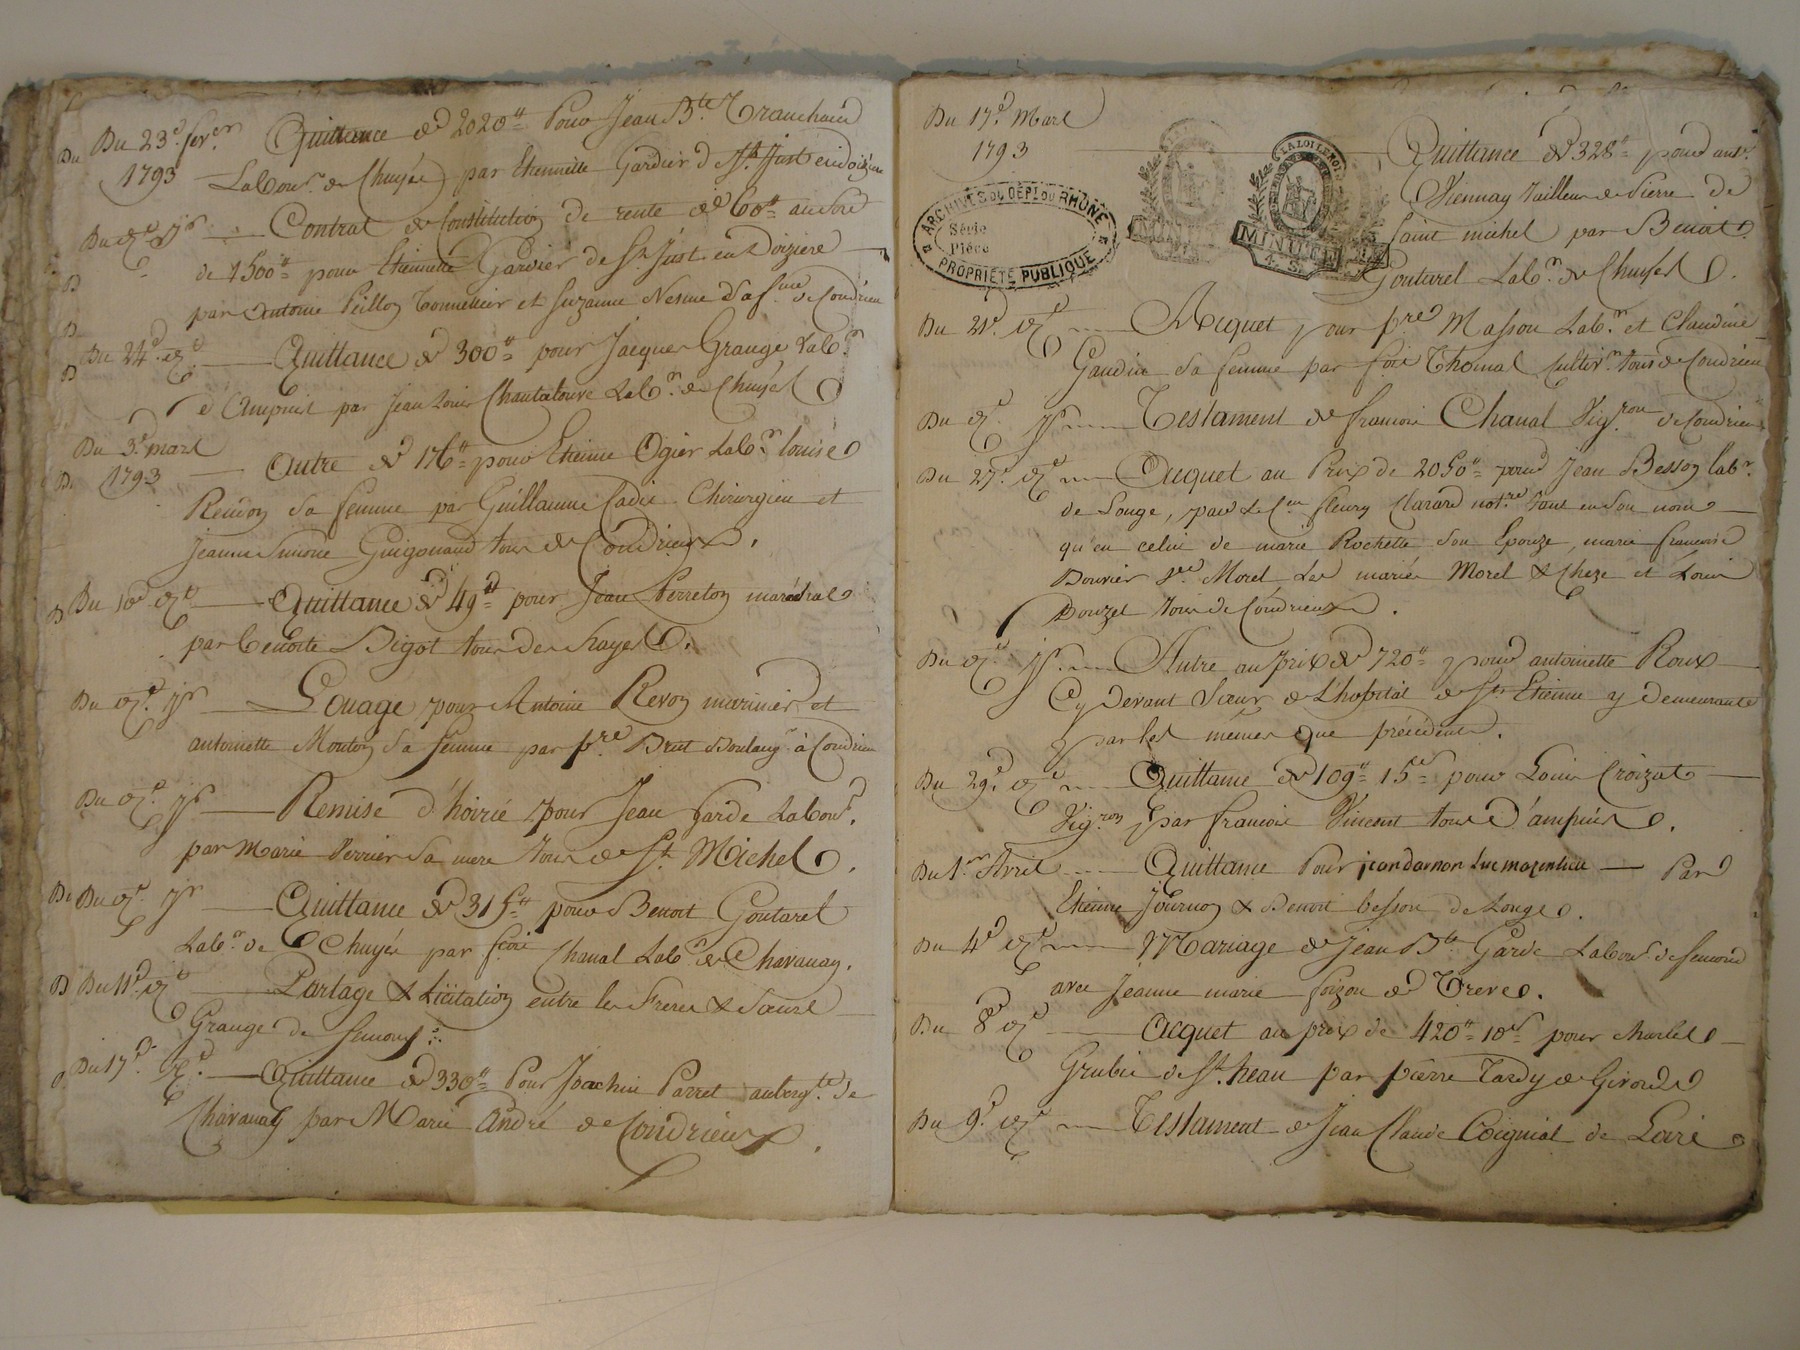 Du 23.e fev.er Quittance de 2020.lt Pour Jean B.te Tranchand
1793 Labour. de Chuyés par Etiennette Gardier de St. Just en doizieu
Du d.t jr Contrat de Constitution de rente de 60.lt au sort
de 1500.lt pour Etiennette Gardier de St. Just en Doizieu
par Antoine Peillon Tonnellier et Suzanne Nesme sa f.me de Condrieu
Du 24.e d.t Quittance de 300.lt pour Jacques Grange Lab.r
d'Ampuis par Jean Louis Chantatouve Lab.r de Chuyés
Du 3.e mars
1793 Autre de 176.lt pour Etienne Ogier Lab.r Louise
Revion Sa femme par Guillaume Cadier Chirurgien et
Jeanne Simone Guigonand tous de Condrieux.
Du 10.e d.t Quittance de 49.lt pour Jean Perreton maréchal
par Benoite Bigot tous des hayes.
Du d.t jr Louage pour Antoine Revon marinier et
antoinette Mouton Sa femme par p.re Brut Boulang.r à Condrieu
Du d.t jr Remise d'hoirié pour Jean Garde Labour.
par Marie Perrier Sa mere tous de St. Michel.
Du d.t jr Quittance de 315.lt pour Benoit Goutarel
Lab.r de Chuyés par f.cois Chanal Lab.r de Chavanay.
Du 11.e d.t Partage & Licitation entre les Freres & Sœurs
Grange de Semons.
Du 17.e d.t Quittance de 330.lt Pour Joachin Parret auberg.te de
Chavanay par Marie André de Condrieux.
Du 17.e Mars
1793 Quittance de 328.lt pour ant.
Viennay tailleur de Pierre de
Saint michel par Benoit
Goutarel Lab.r de Chuyés.
ARCHIVES DU DÉPT DU RHÔNE
Série
Pièce
PROPRIÉTÉ PUBLIQUE
LA LOI LE ROI
MINUTE
4. S.
Du 21.e d.t Acquet pour p.re Masson Lab.r et Claudine
Gaudin sa femme par f.cois Thomas Cultiv.r tous de Condrieu
Du d.t jr Testament de francois Chanal Vig.ron de Condrieu
Du 27.e d.t Acquet au Prix de 2050.lt pour Jean Besson Lab.r
de Longe, par le C.en fleury Clarard not.re tant en son nom
qu'en celui de marie Rochette son Epouze, marie francoise
Bouvier v.ve Morel Les mariés Morel & Cheze et Louis
Douzet tous de Condrieux.
Du d.t jr Autre au prix de 720.lt pour antoinette Roux
Cy Devant Sœur de L'hopital de St. Etienne y demeurante
par les mêmes que précédents.
Du 29.e d.t Quittance de 109.lt 15.s pour Louis Croizat
Vig.ron par francois Vincent tous d'ampuis.
Du 1.er Avril Quittance Pour jean darnon Par
Etienne Journon & Benoit besson de Longe.
Du 4.e d.t Mariage de Jean B.te Garde Labour. de Semons
avec Jeanne marie foizon de Treve.
Du 8.e d.t Acquet au prix de 420.lt 10.s pour Charles
Grubis de St. heau par pierre Tardy de Givors
Du 9.e d.t Testament de Jean Claude Coigniat de Loire